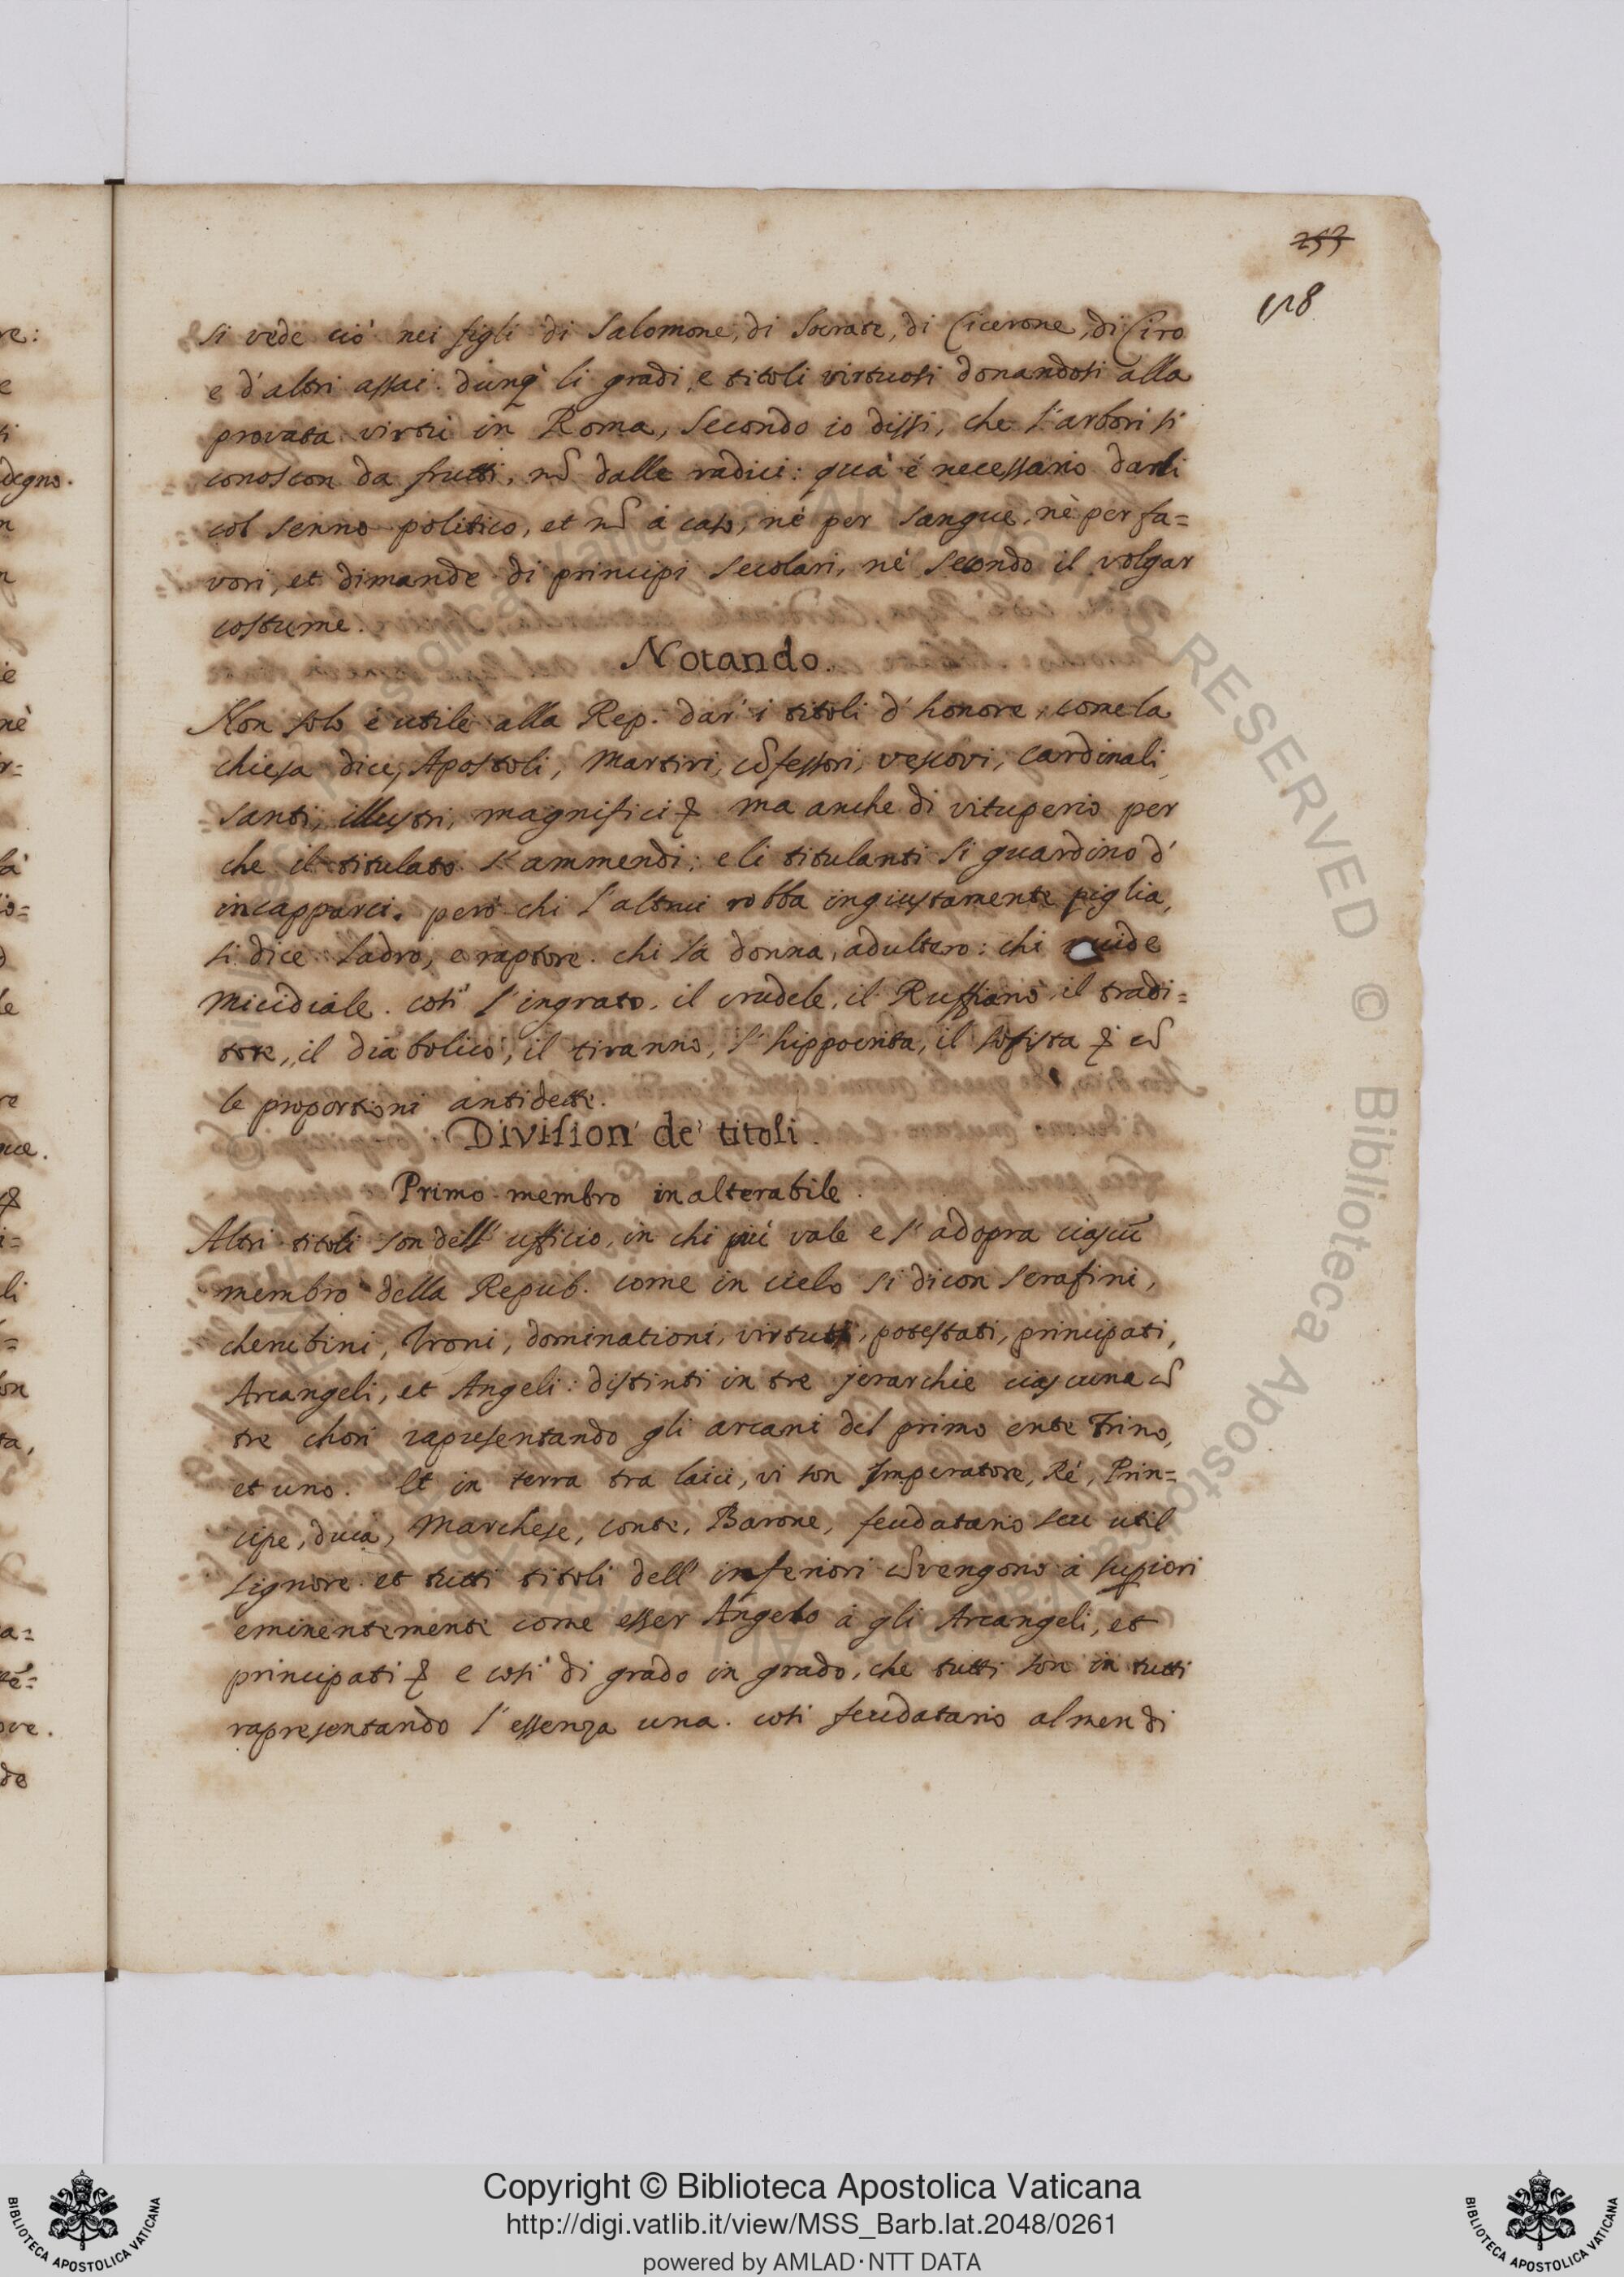 253
128
si vede ciò nei figli di Salomone, di Socrate, di Cicerone, di Ciro
e d'altri assai. dunq̃ li gradi, e titoli virtuosi donandosi alla
provata virtù in Roma, secondo io dissi, che l'arbori si
conoscon da frutti, nõ dalle radici: quà è necessario darli
col senno politico, et nõ à caso, nè per sangue, nè per fa=
vori, et dimande di principi secolari, nè secondo il volgar
costume.
Notando.
Non solo è utile alla Rep. dar' i titoli d'honore, come la
chiesa dice, Apostoli, Martiri, cõfessori, vescovi, cardinali,
santi, illustri, magnifici & ma anche di vituperio per
che il titulato s'ammendi: e li titulanti si guardino d'
incapparci. però chi l'altrui robba ingiustamente piglia,
si dice ladro, e raptore. chi la donna, adultero: chi
micidiale. così l'ingrato, il crudele, il Ruffiano il tradi=
tore, il diabolico, il tiranno, l'hippocrita, il sofista & cõ
le proportioni antidette.
Division' de' titoli.
Primo membro inalterabile.
Altri titoli son dell' ufficio, in chi più vale e s'adopra ciascũ
membro della Repub. come in cielo si dicon serafini,
cherubini, Troni, dominationi, virtuti, potestati, principati,
Arcangeli, et Angeli: distinti in tre jerarchie ciascuna cõ
tre chori rapresentando gli arcani del primo ente Trino,
et uno. Et in terra tra laici, vi son Imperatore, Rè, Prin=
cipe, duca, Marchese, conte, Barone, feudatario seu util
signore et tutti titoli dell' inferiori cõvengono à supiori
eminentemente come esser Angelo à gli Arcangeli, et
principati & e così di grado in grado, che tutti son in tutti
rapresentando l'essenza una. così feudatario almen di
re:
e
degno.
n
nè
r=
là
io=
le
re
&
i=
li
=
on
ta,
a=
ve.
de
RESERVED © Biblioteca Apostolica Vaticana
Copyright © Biblioteca Apostolica Vaticana
http://digi.vatlib.it/view/MSS_Barb.lat.2048/0261
powered by AMLAD·NTT DATA
BIBLIOTECA APOSTOLICA VATICANA
BIBLIOTECA APOSTOLICA VATICANA